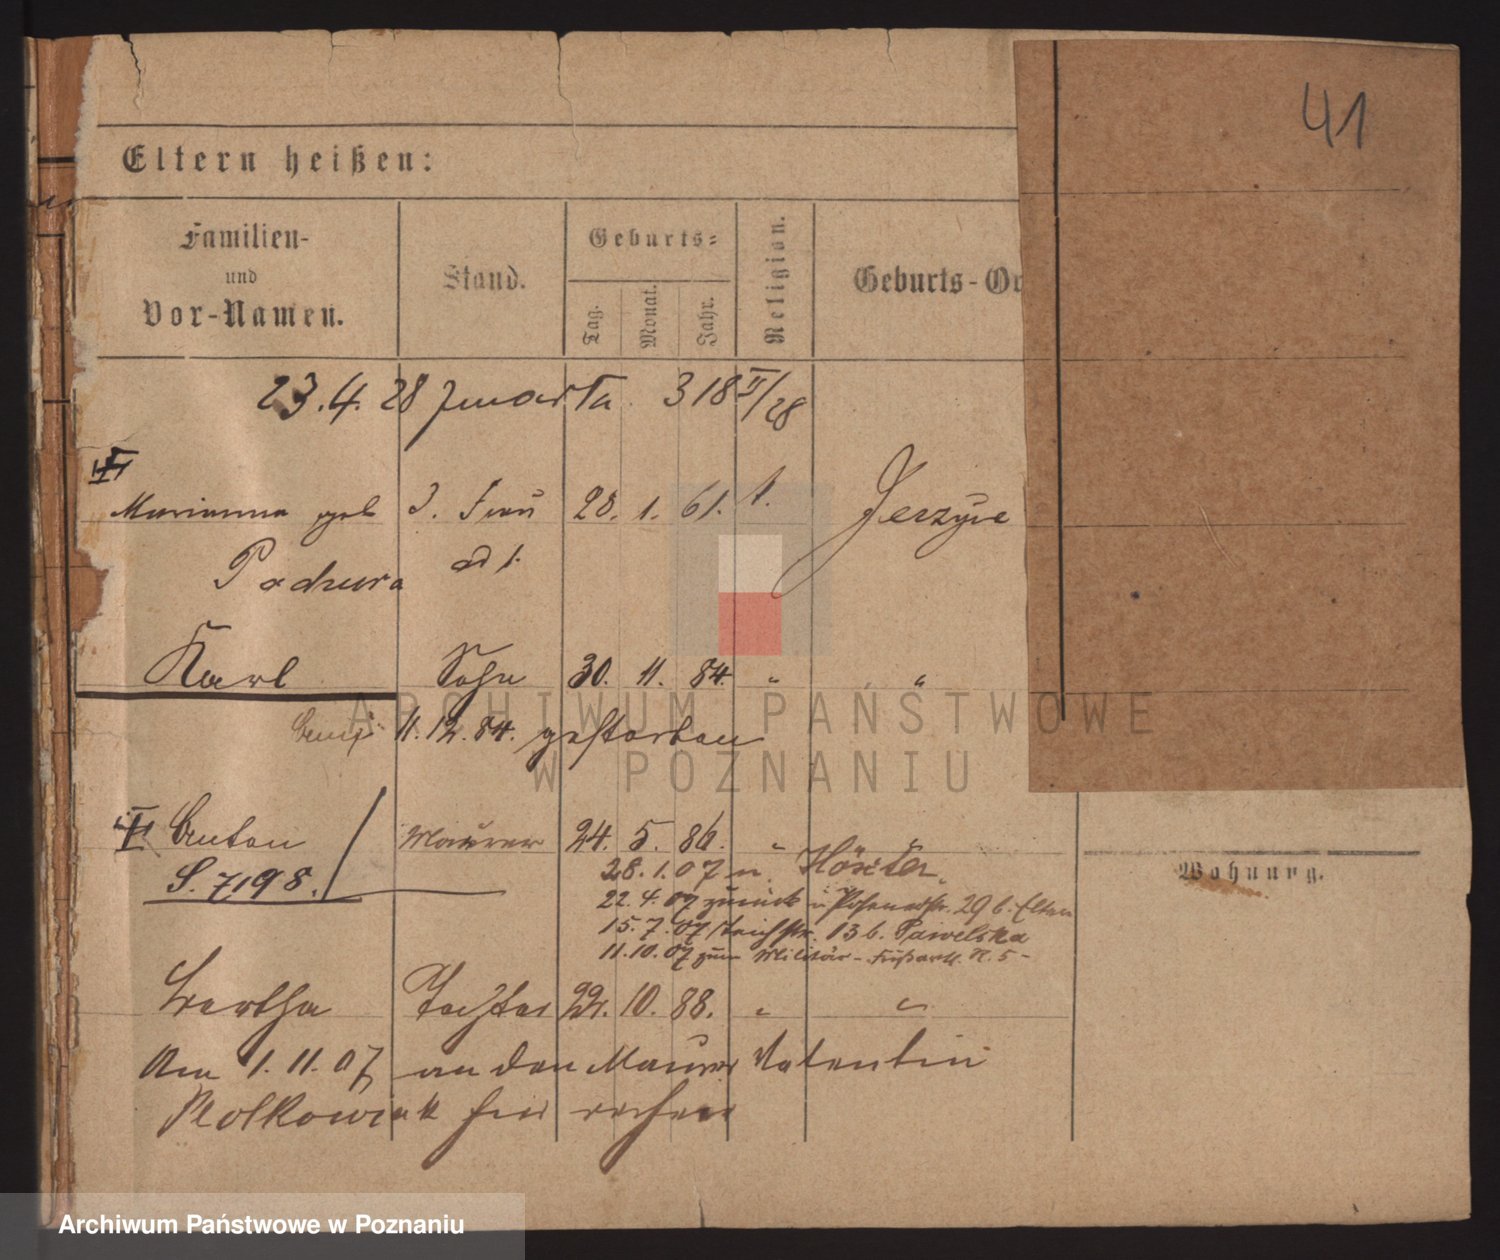 41
Eltern heißen:
Familien-
und
Vor-Namen.
Stand.
Geburts-
Tag.
Monat.
Jahr.
Religion.
Geburts-Or
23.4.28 zmarła 318 II/28
Marianna geb J. Frau 28. 1. 61. k. Jerzyce
Padzura ad 1.
Karl Sohn 30. 11. 84. " "
11. 12. 84. gestorben
Anton Maurer 24. 5. 86. "
S. 7198.
28.1.07 n. Höxter
22.4.07 zurück Posenerstr. 29 b. Eltern
15.7.07 Teichstr. 13 b. Pawelska
11.10.07 zum Militär - Fußart. R. 5 -
Wohnung.
Bertha Tochter 22. 10. 88. " "
Am 1.11.07 an den Maurer Valentin
Wolkowiak
ARCHIWUM PAŃSTWOWE
W POZNANIU
Archiwum Państwowe w Poznaniu